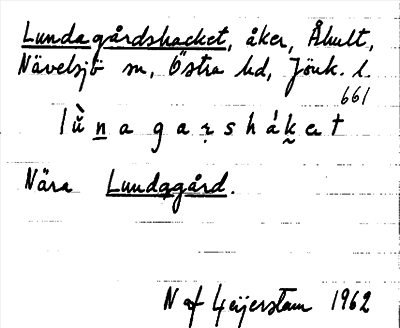 Lundagårdshacket, åker, Åhult,
Nävelsjö sn, Östra hd, Jönk. l.
661
lùnagaṛsháḳet
Nära Lundagård.
N af Geijerstam 1962